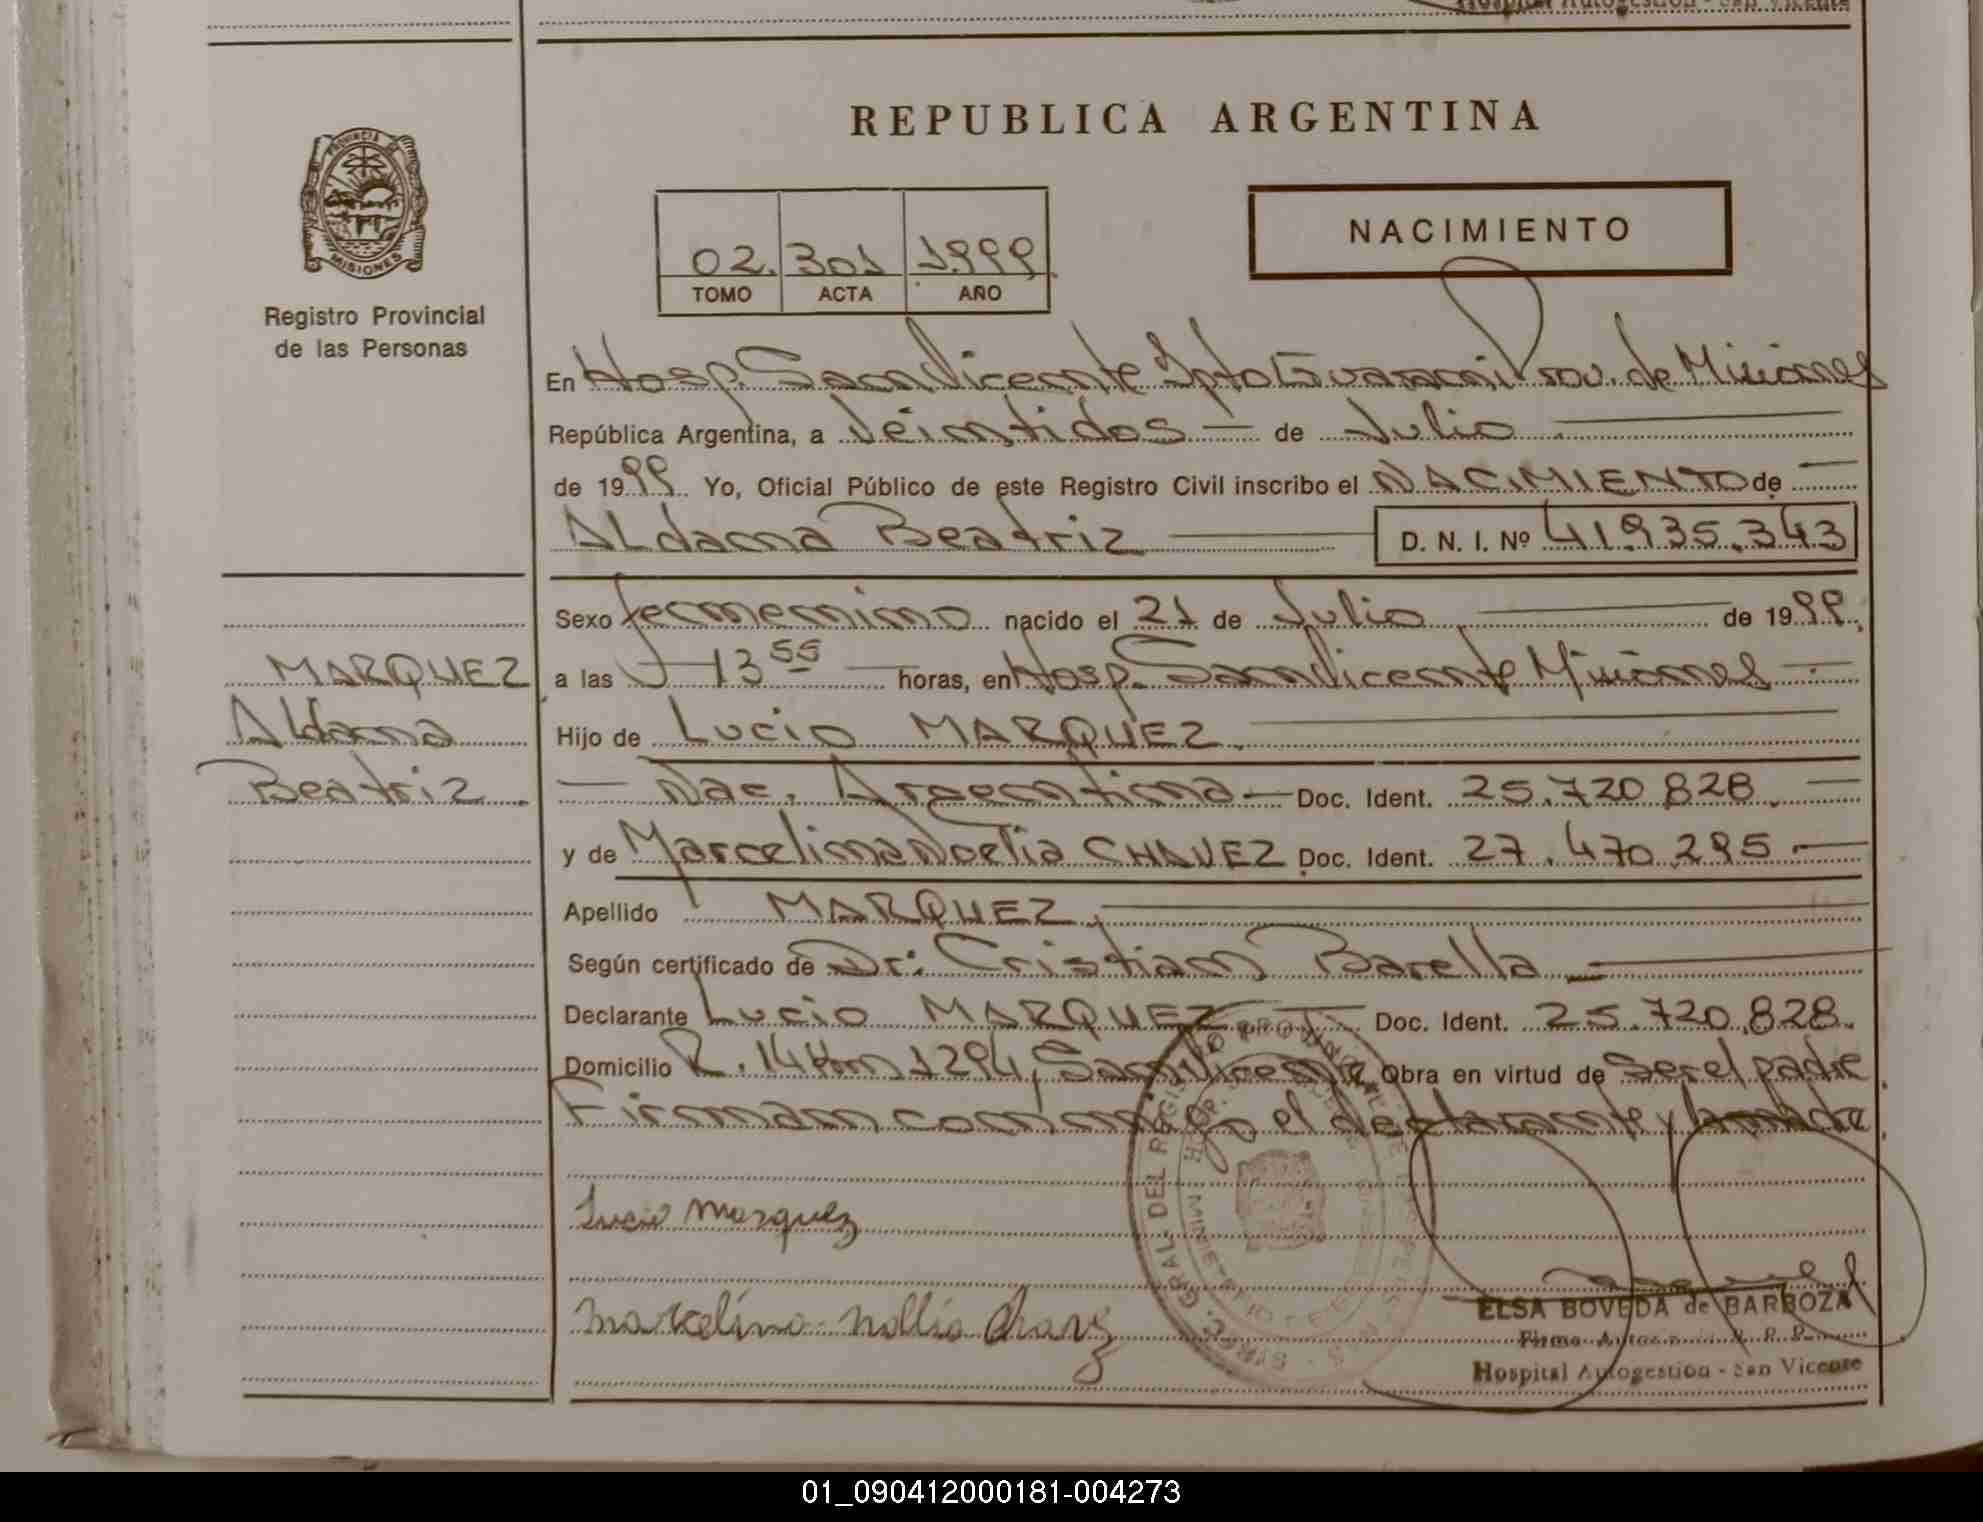 Hospital Autogestion - San Vicente
REPUBLICA ARGENTINA
PROVINCIA DE
MISIONES
Registro Provincial
de las Personas
02. 301 1999
TOMO ACTA AÑO
NACIMIENTO
En Hosp. San Vicente Dpto Guarani Prov. de Misiones
República Argentina, a Veintidos — de Julio
de 1999. Yo, Oficial Público de este Registro Civil inscribo el NACIMIENTO de
Aldana Beatriz D. N. I. Nº 41.935.343
Sexo femenino nacido el 21 de Julio de 1999.
a las 13 55 horas, en Hosp. San Vicente Misiones —
Hijo de Lucio MARQUEZ.
— Nac. Argentina — Doc. Ident. 25.720.828. —
y de Marcelina Noelia CHAVEZ Doc. Ident. 27.470.295. —
Apellido MARQUEZ.
Según certificado de Dr: Cristian Barella —
Declarante Lucio MARQUEZ — Doc. Ident. 25.720.828.
Domicilio R. 14 Km 1294, San Vicente Obra en virtud de ser el padre.
Firman conmigo el declarante y la madre.
MARQUEZ
Aldana
Beatriz
Lucio Marquez
Marcelina Nollia Chavez
GRAL. DEL REGISTRO PROVINCIAL DE LAS PERSONAS
ELSA BOVEDA de BARBOZA
Firma Autorizada R. P. P.
Hospital Autogestion - San Vicente
01_090412000181-004273